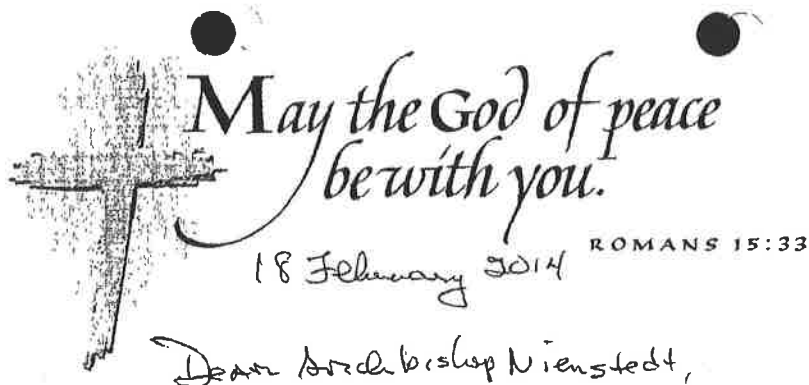 May the God of peace
be with you.
ROMANS 15:33
18 February 2014
Dear Archbishop Nienstedt,